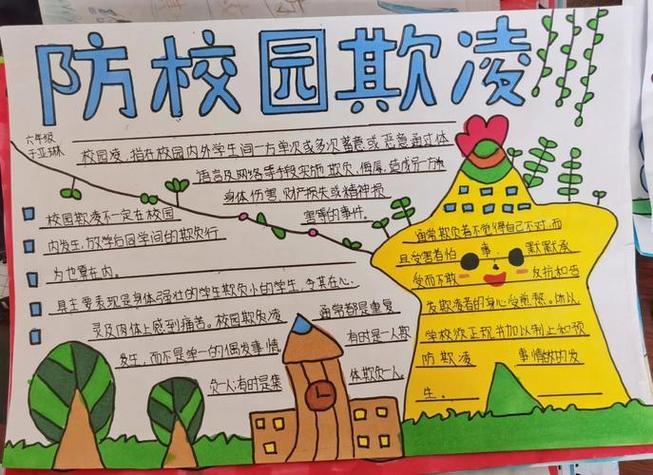 防校园欺凌
六年级
于亚琳
校园凌，指在校园内外学生间一方单次或多次蓄意或恶意通过体
语言及网络等手段实施欺负、侮辱，造成另一方
身体伤害、财产损失或精神损
害等的事件。
校园欺凌不一定在校园
内发生，放学后同学间的欺负行
为也算在内。
具主要表现是身体强壮的学生欺负小的学生，令其在心
灵及肉体上感到痛苦。校园欺负凌
通常都是重复
发生，而不是单一的偶发事情
有时是一人欺
负一人；有时是集
体欺负一人。
通常欺负者不觉得自己不对，而
且受害者怕事，默默承
受而不敢反抗和告
发欺凌者的身心受煎熬。
学校须正视并加以制止和预
防欺凌事情的发
生。